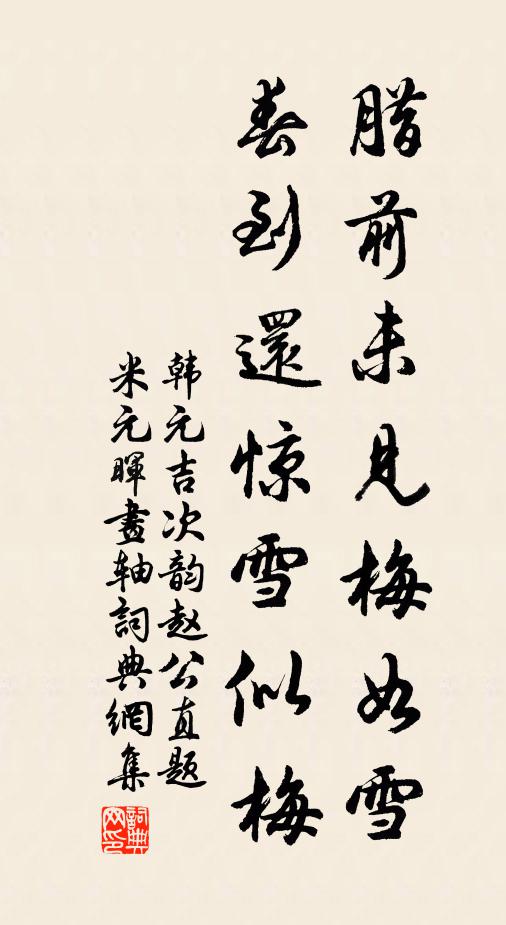 腊前未見梅如雪
春到還惊雪似梅
韩元吉次韵赵公直题
米元暉畫轴詞典網集
詞典网印